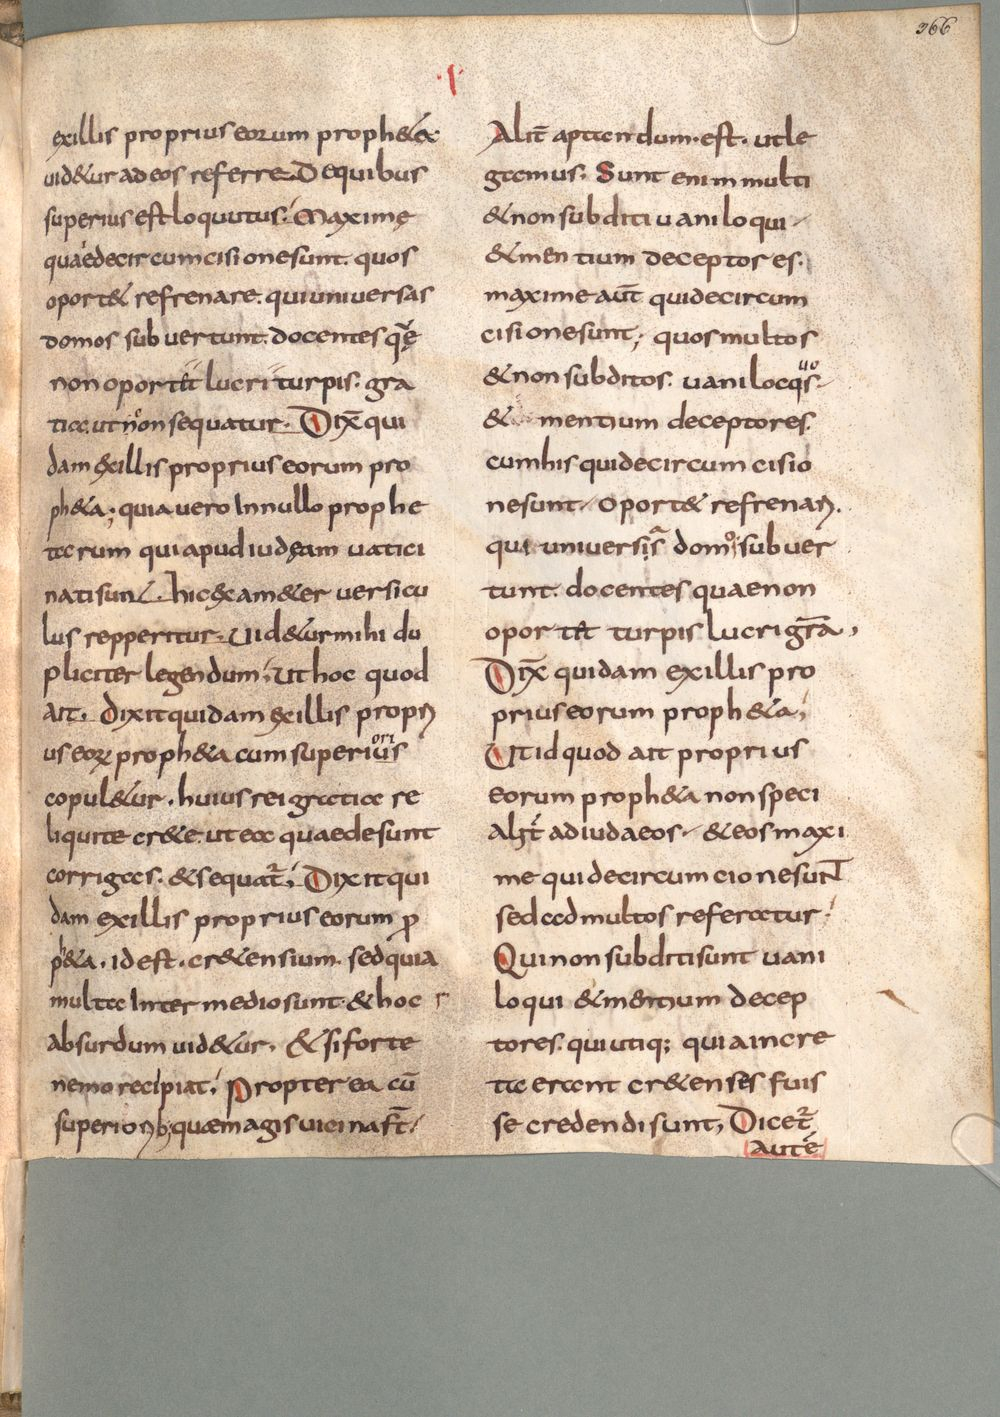 366
·I·
exillis proprius eorum proph&a
uid&ur adeos referre. Dequibus
superius est loquutus. Maxime
quaedecircumcisionesunt. quos
oport& refrenare. quiuniuersas
domos subuertunt. docentes quę
non oportet lucri turpis. gra
tia. ut non sequatur. Dix̄ qui
dam exillis proprius eorum pro
ph&a; quia uero Innullo prophe
tarum qui apud iudęam uatici
natisunt. hic exam&er uersicu
lus repperitur. Uid&ur mihi du
pliciter legendum; Ut hoc quod
ait. Dixit quidam exillis propri
us eorum proph&a cum superioris
copul&ur. huius rei gratia re
liqui te cr&e. ut ea quaedesunt
corrigas. & sequat̄. Dixit qui
dam exillis proprius eorum pro
ph&a. id est. cr&ensium. sed quia
multa Inter medio sunt & hoc
absurdum uid&ur. & si forte
nemo recipiat. Propter ea cū
superiorib; quae magis uicina st̄
Alit̄ aptandum. est. ut le
gamus. Sunt enim multi
& non subditi uaniloqui
& mentium deceptores.
maxime aut̄ quidecircum
cisionesunt; quos multos
& non subditos. uanilocqs. uo
& mentium deceptores.
cum his quidecircumcisio
nesunt. Oport& refrenari.
qui uniuersas domos subuer
tunt. docentes quaenon
oportet turpis lucri gr̄a,
Dix̄ quidam exillis pro
prius eorum proph&a;
Ut id quod ait proprius
eorum proph&a non speci
alit̄ ad iudaeos. & eos maxi
me quidecircumcionesunT
sed ad multos referatur.
Qui non subditi sunt uani
loqui & mentium decep
tores. qui utiq; quia incre
ta erant cr&enses fuis
se credendi sunt, Dicet̄
autē